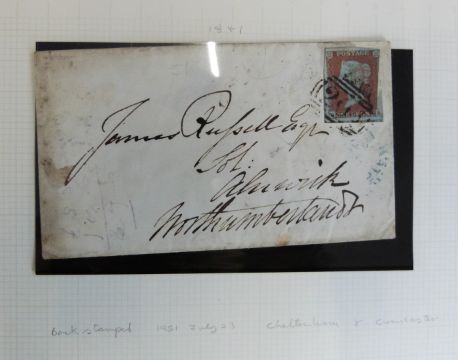 1841
POSTAGE
James Russell Esqr
Sol:
Alnwick
Northumberland
Back stamped 1851 July 23 Cheltenham &